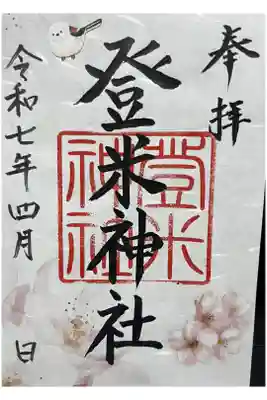 奉拝
登米神社
登米神社
令和七年四月 日